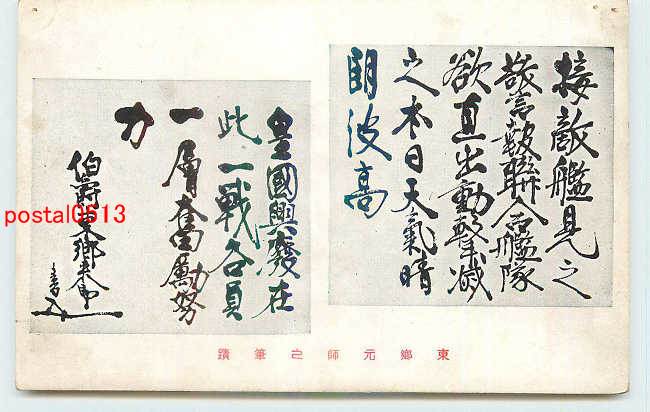 接敵艦見之
警報聯合艦隊
欲直出動撃滅
之本日天氣晴
朗波高
皇國興廢在
此一戰各員
一層奮勵努
力
伯爵東郷
東鄉元師之筆蹟
postal0513